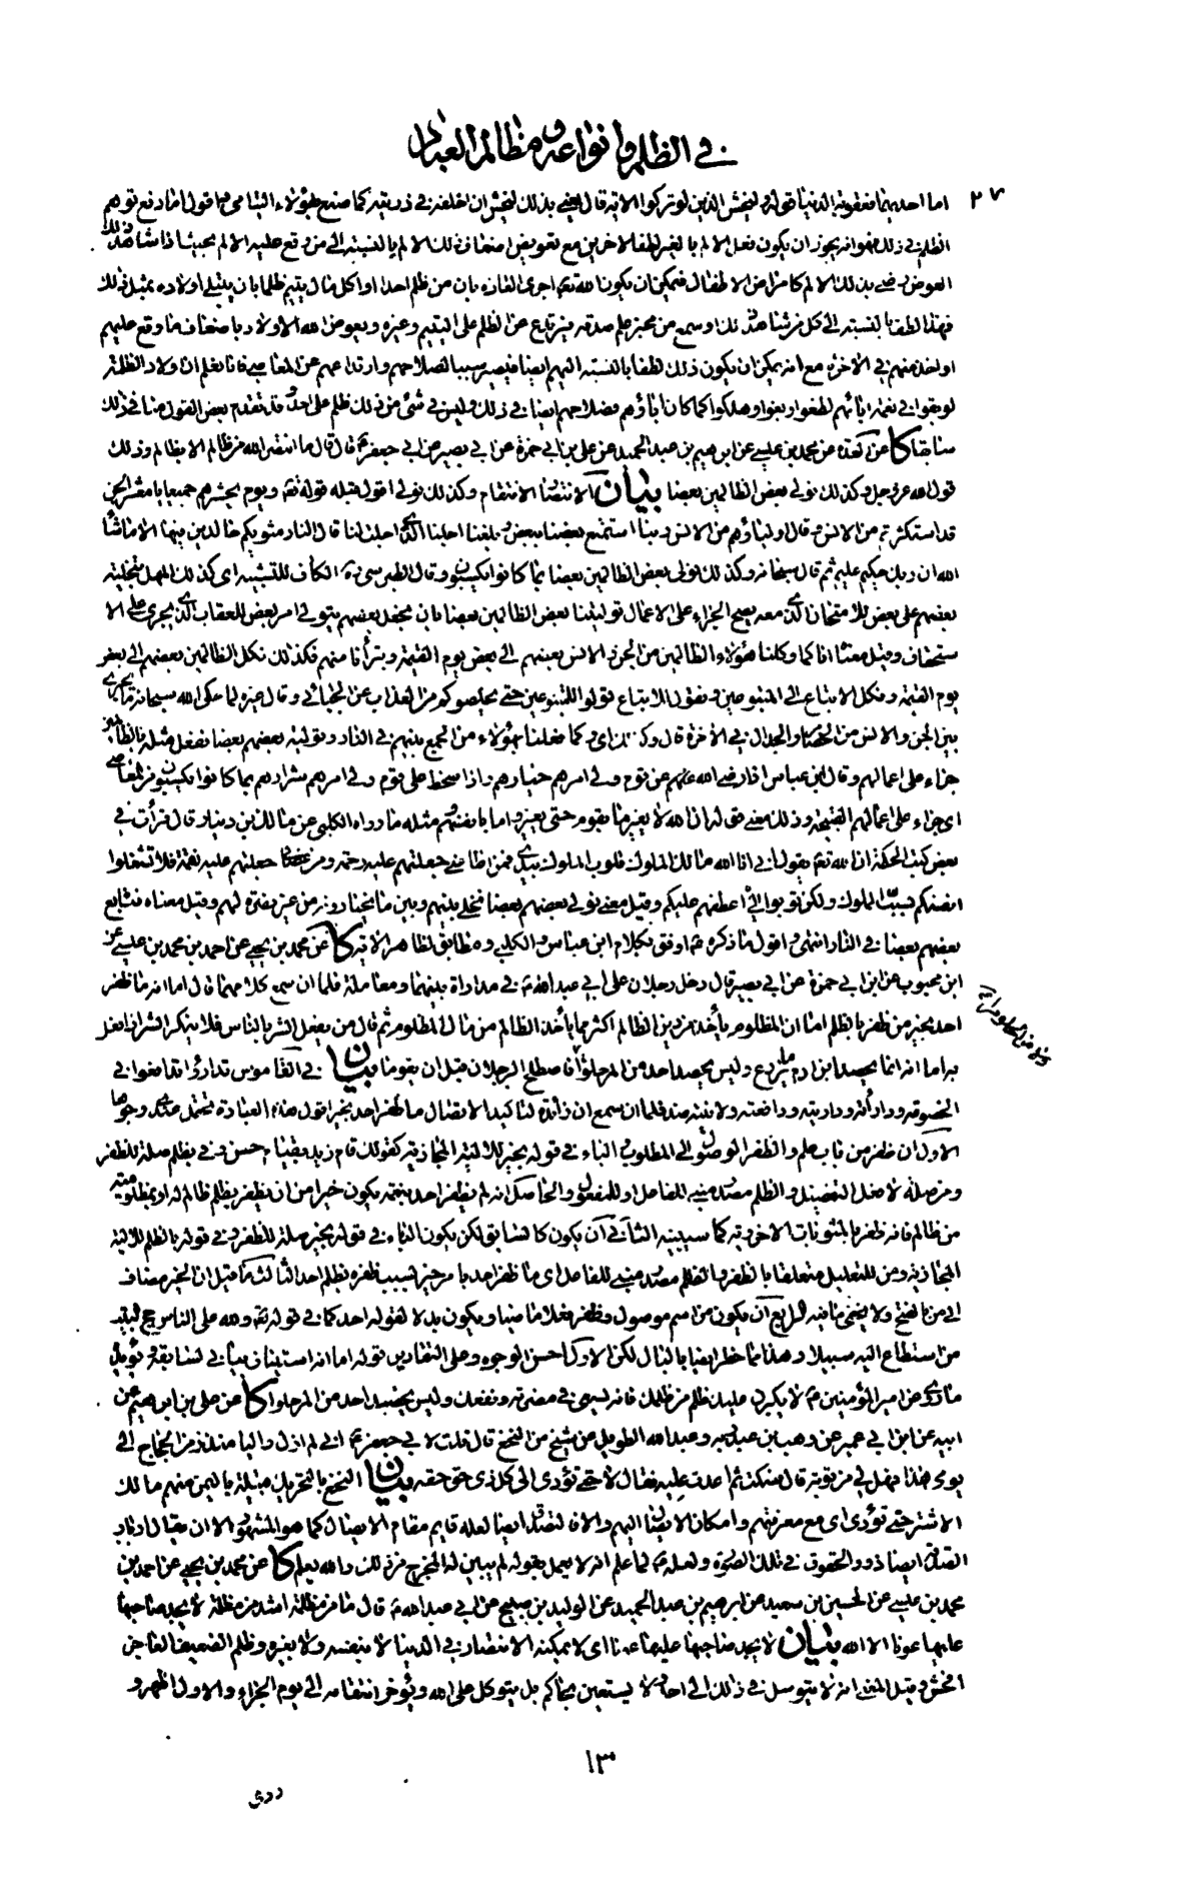 في الظلم وانواعه ومظالم العباد
٢٧
اما احديهما فعقوبة الدنيا قوله وليخش الذين لو تركوا الاية قال يعني بذلك ليخش ان اخلفه في ذريته كما صنع بهؤلاء اليتامى واقول اما دفع توهم
الظلم في ذلك فهو انه يجوز ان يكون فعل الالم بالغير لطفا لاخرين مع تعويض اضعاف ذلك الالم بالنسبة الى من وقع عليه الالم بحيث اذا شاهد ذلك
العوض رضي بذلك الالم كامراض الاطفال فيمكن ان يكون الله تعالى اجرى العادة بان من ظلم احدا او اكل مال يتيم ظلما بان يبتلي اولاده بمثل ذلك
فهذا لطف بالنسبة الى كل من شاهد ذلك او سمع من مخبر علم صدقه فيرتدع عن الظلم على اليتيم وغيره ويعوض الله الاولاد باضعاف ما وقع عليهم
او اخذ منهم في الاخرة مع انه يمكن ان يكون ذلك لطفا بالنسبة اليهم ايضا فيصير سببا لصلاحهم وارتداعهم عن المعاصي فانا نعلم ان اولاد الظلمة
لو بقوا في نعمة ابائهم لطغوا وبغوا وهلكوا كما كان اباؤهم فصلاحهم ايضا في ذلك وليس في شئ من ذلك ظلم على احد وقد تقدم بعض القول منا في ذلك
سابقا كا عن العدة عن محمد بن عيسى عن ابرهيم بن عبد الحميد عن علي بن ابي حمزة عن ابي بصير عن ابي جعفر ع قال قال ما انتصر الله من ظالم الا بظالم وذلك
قول الله عز وجل وكذلك نولي بعض الظالمين بعضا بيان الانتصار الانتقام وكذلك نولي اقول قبله قوله تعالى ويوم يحشرهم جميعا يا معشر الجن
قد استكثرتم من الانس وقال اولياؤهم من الانس ربنا استمتع بعضنا ببعض وبلغنا اجلنا الذي اجلت لنا قال النار مثويكم خالدين فيها الا ما شاء
الله ان ربك حكيم عليم ثم قال سبحانه وكذلك نولي بعض الظالمين بعضا بما كانوا يكسبون وقال الطبرسي ره الكاف للتشبيه اي كذلك المهل بتخلية
بعضهم على بعض للامتحان الذي معه يصح الجزاء على الاعمال توليتنا بعض الظالمين بعضا بان نجعل بعضهم يتولى امر بعض للعقاب الذي يجري على الا
ستحقاق وقيل معناه انا كما وكلنا هؤلاء الظالمين من الجن والانس بعضهم الى بعض يوم القيمة وتبرأنا منهم فكذلك نكل الظالمين بعضهم الى بعض
يوم القيمة ونكل الاتباع الى المتبوعين ونقول للاتباع قولوا للمتبوعين حتى يخلصوكم من العذاب عن الجبائي وقال غيره لما حكى الله سبحانه ما يجري
بين الجن والانس من الخصام والجدال في الاخرة قال وكذلك اي وكما فعلنا بهؤلاء من الجمع بينهم في النار وتولية بعضهم بعضا نفعل مثله بالظالمين
جزاء على اعمالهم وقال ابن عباس اذا رضي الله عنهم عن قوم ولى امرهم خيارهم واذا سخط على قوم ولى امرهم شرارهم بما كانوا يكسبون من المعاصي
اي جزاء على اعمالهم القبيحة وذلك معنى قوله ان الله لا يغير ما بقوم حتى يغيروا ما بانفسهم ومثله ما رواه الكلبي عن مالك بن دينار قال قرأت في
بعض كتب الحكمة ان الله تعالى يقول اني انا الله مالك الملوك قلوب الملوك بيدي فمن اطاعني جعلتهم عليه رحمة ومن عصاني جعلتهم عليه نقمة فلا تشغلوا
انفسكم بسبّ الملوك ولكن توبوا اليّ اعطفهم عليكم وقيل معنى نولي بعضهم بعضا نخلي بينهم وبين ما يختارونه من غير نصرة لهم وقيل معناه نتابع
بعضهم بعضا في النار انتهى واقول ما ذكره ع اوفق بكلام ابن عباس والكلبي ومطابق لظاهر الاية كا عن محمد بن يحيى عن احمد بن محمد بن عيسى عن
ابن محبوب عن ابن ابي حمزة عن ابي بصير قال دخل رجلان على ابي عبد الله ع في مداراة بينهما ومعاملة فلما ان سمع كلامهما قال اما انه ما ظفر
احد بخير من ظفر بالظلم اما ان المظلوم يأخذ من دين الظالم اكثر مما يأخذ الظالم من مال المظلوم ثم قال من يفعل الشر بالناس فلا ينكر الشر اذا فعل
به اما انه انما يحصد ابن ادم ما يزرع وليس يحصد احد من المر حلوا فاصطلح الرجلان قبل ان يقوما بيان في القاموس تدارؤا تدافعوا في
الخصومة ودارأته وداريته ودافعته ولاينته ضد فلما ان سمع ان زائدة لتاكيد الاتصال ما ظفر احد بخير اقول هذه العبارة تحتمل عندي وجوها
الاول ان ظفر من باب علم والظفر الوصول الى المطلوب والباء في قوله بخير للالية المجازية كقولك قام زيد بقيام حسن وفي بظلم صلة للظفر
ومن صلة لافعل التفضيل والظلم مصدر مبني للفاعل او للمفعول والحاصل انه لم يظفر احد بنعمة يكون خيرا من ان يظفر بظلم ظالم له او بمظلومية
من ظالم فانه ظفر بالمثوبات الاخروية كما سيبينه الثاني ان يكون كالسابق لكن يكون الباء في قوله بخير صلة للظفر وفي قوله بالظلم للالية
المجازية ومن للتعليل متعلقا بالظفر والظلم مصدر مبني للفاعل اي ما ظفر احد بامر خير بسبب ظفره بظلم احد الثالث ما قيل ان الخير مضاف
الى من بالفتح ولا يخفى ما فيه الرابع ان يكون من اسم موصول وظفر فعلا ماضيا ويكون بدلا لقوله احد كما في قوله تعالى ولله على الناس حج البيت
من استطاع اليه سبيلا وهذا مما خطر ايضا بالبال لكن الاول احسن الوجوه وعلى التقادير قوله اما انه استيناف بياني لسابقه ويؤيده
ما روي عن امير المؤمنين ع لا يكبرن عليك ظلم من ظلمك فانه يسعى في مضرته ونفعك وليس يحصد احد من المر حلوا كا عن علي بن ابرهيم عن
ابيه عن ابن ابي عمير عن وهب بن عبد ربه وعبد الله الطويل عن شيخ من النخع قال قلت لابي جعفر ع اني لم ازل واليا منذ زمن الحجاج الى
يومي هذا فهل لي من توبة قال فسكت ثم اعدت عليه فقال لا حتى تؤدي الى كل ذي حق حقه بيان النخع بالتحريك قبيلة باليمن منهم مالك
الاشتر حتى تؤدي اي مع معرفتهم وامكان الايصال اليهم والا فالتصدق ايضا لعله قايم مقام الايصال كما هو المشهور الا ان يقال ارباب
الصدقة ايضا ذوو الحقوق في تلك الصورة ولعله ع لما علم انه لا يعمل بقوله لم يبين له المخرج من ذلك والله يعلم كا عن محمد بن يحيى عن احمد بن
محمد بن عيسى عن الحسين بن سعيد عن ابرهيم بن عبد الحميد عن الوليد بن صبيح عن ابي عبد الله ع قال ما من مظلمة اشد من مظلمة لا يجد صاحبها
عليها عونا الا الله بيان لا يجد صاحبها عليها عونا اي لا يمكنه الانتصار في الدنيا لا بنفسه ولا بغيره وظلم الضعيف العاجز
افحش وقيل المعنى انه لا يتوسل في ذلك الى احد ولا يستعين بحاكم بل يتوكل على الله ويؤخر انتقامه الى يوم الجزاء والاول اظهر و
١٣